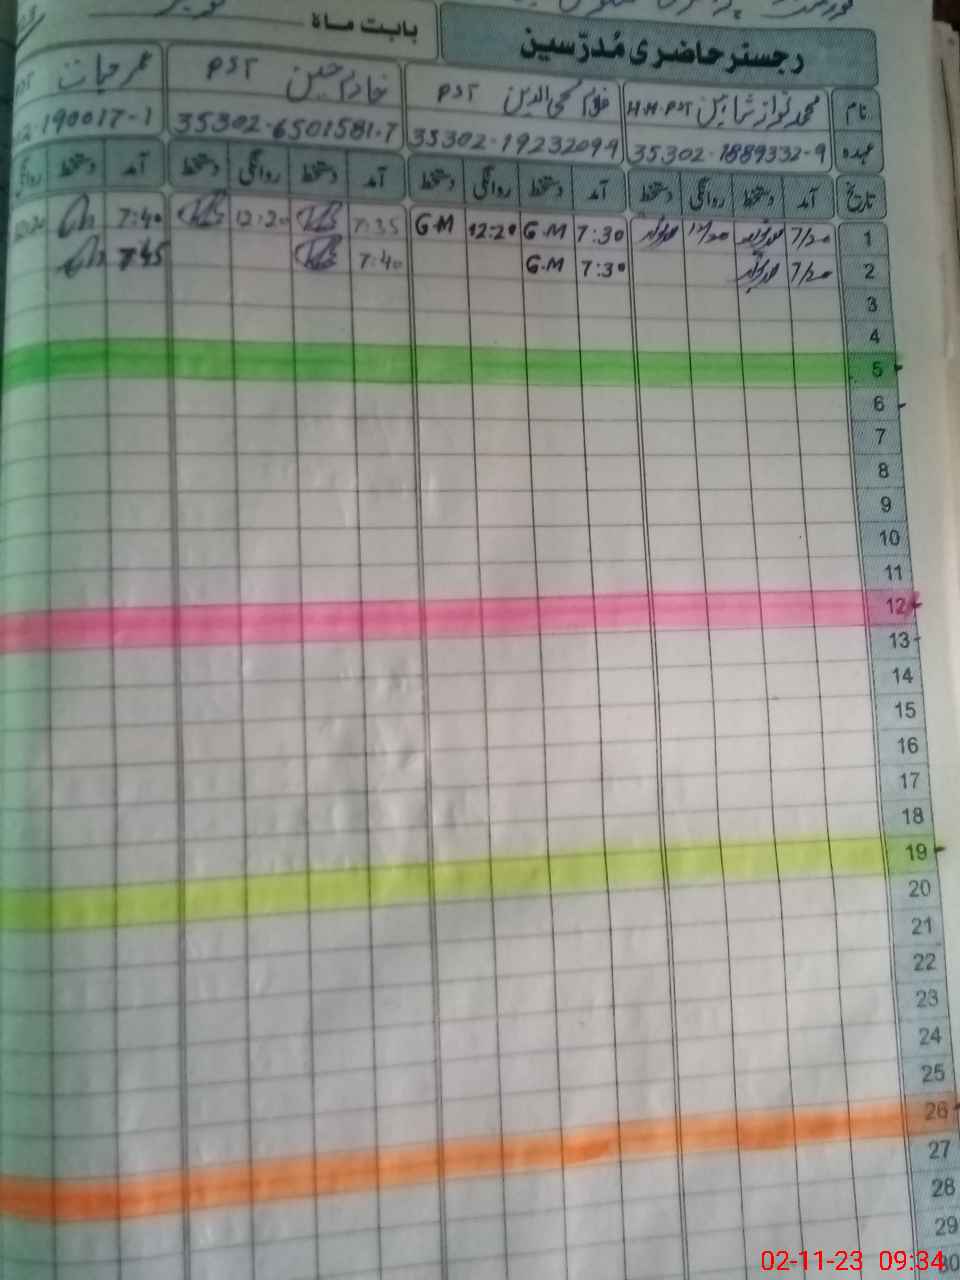 رجسٹر حاضری مُدرّسین بابت ماہ
نام محمد نواز شاہین H.H.PST غلام محی الدین PST خادم حسین PST عمر حیات
عہدہ 35302-1889332-9 35302-1923209-9 35302-6501581-7 190017-1
تاریخ آمد دستخط روانگی دستخط آمد دستخط روانگی دستخط آمد دستخط روانگی دستخط آمد دستخط روانگی
1 7/20 12/20 7:30 G.M 12:20 G.M 7:35 12:20 7:40
2 7/20 7:30 G.M 7:40 7:45
3
4
5
6
7
8
9
10
11
12
13
14
15
16
17
18
19
20
21
22
23
24
25
26
27
28
29
30
02-11-23 09:34